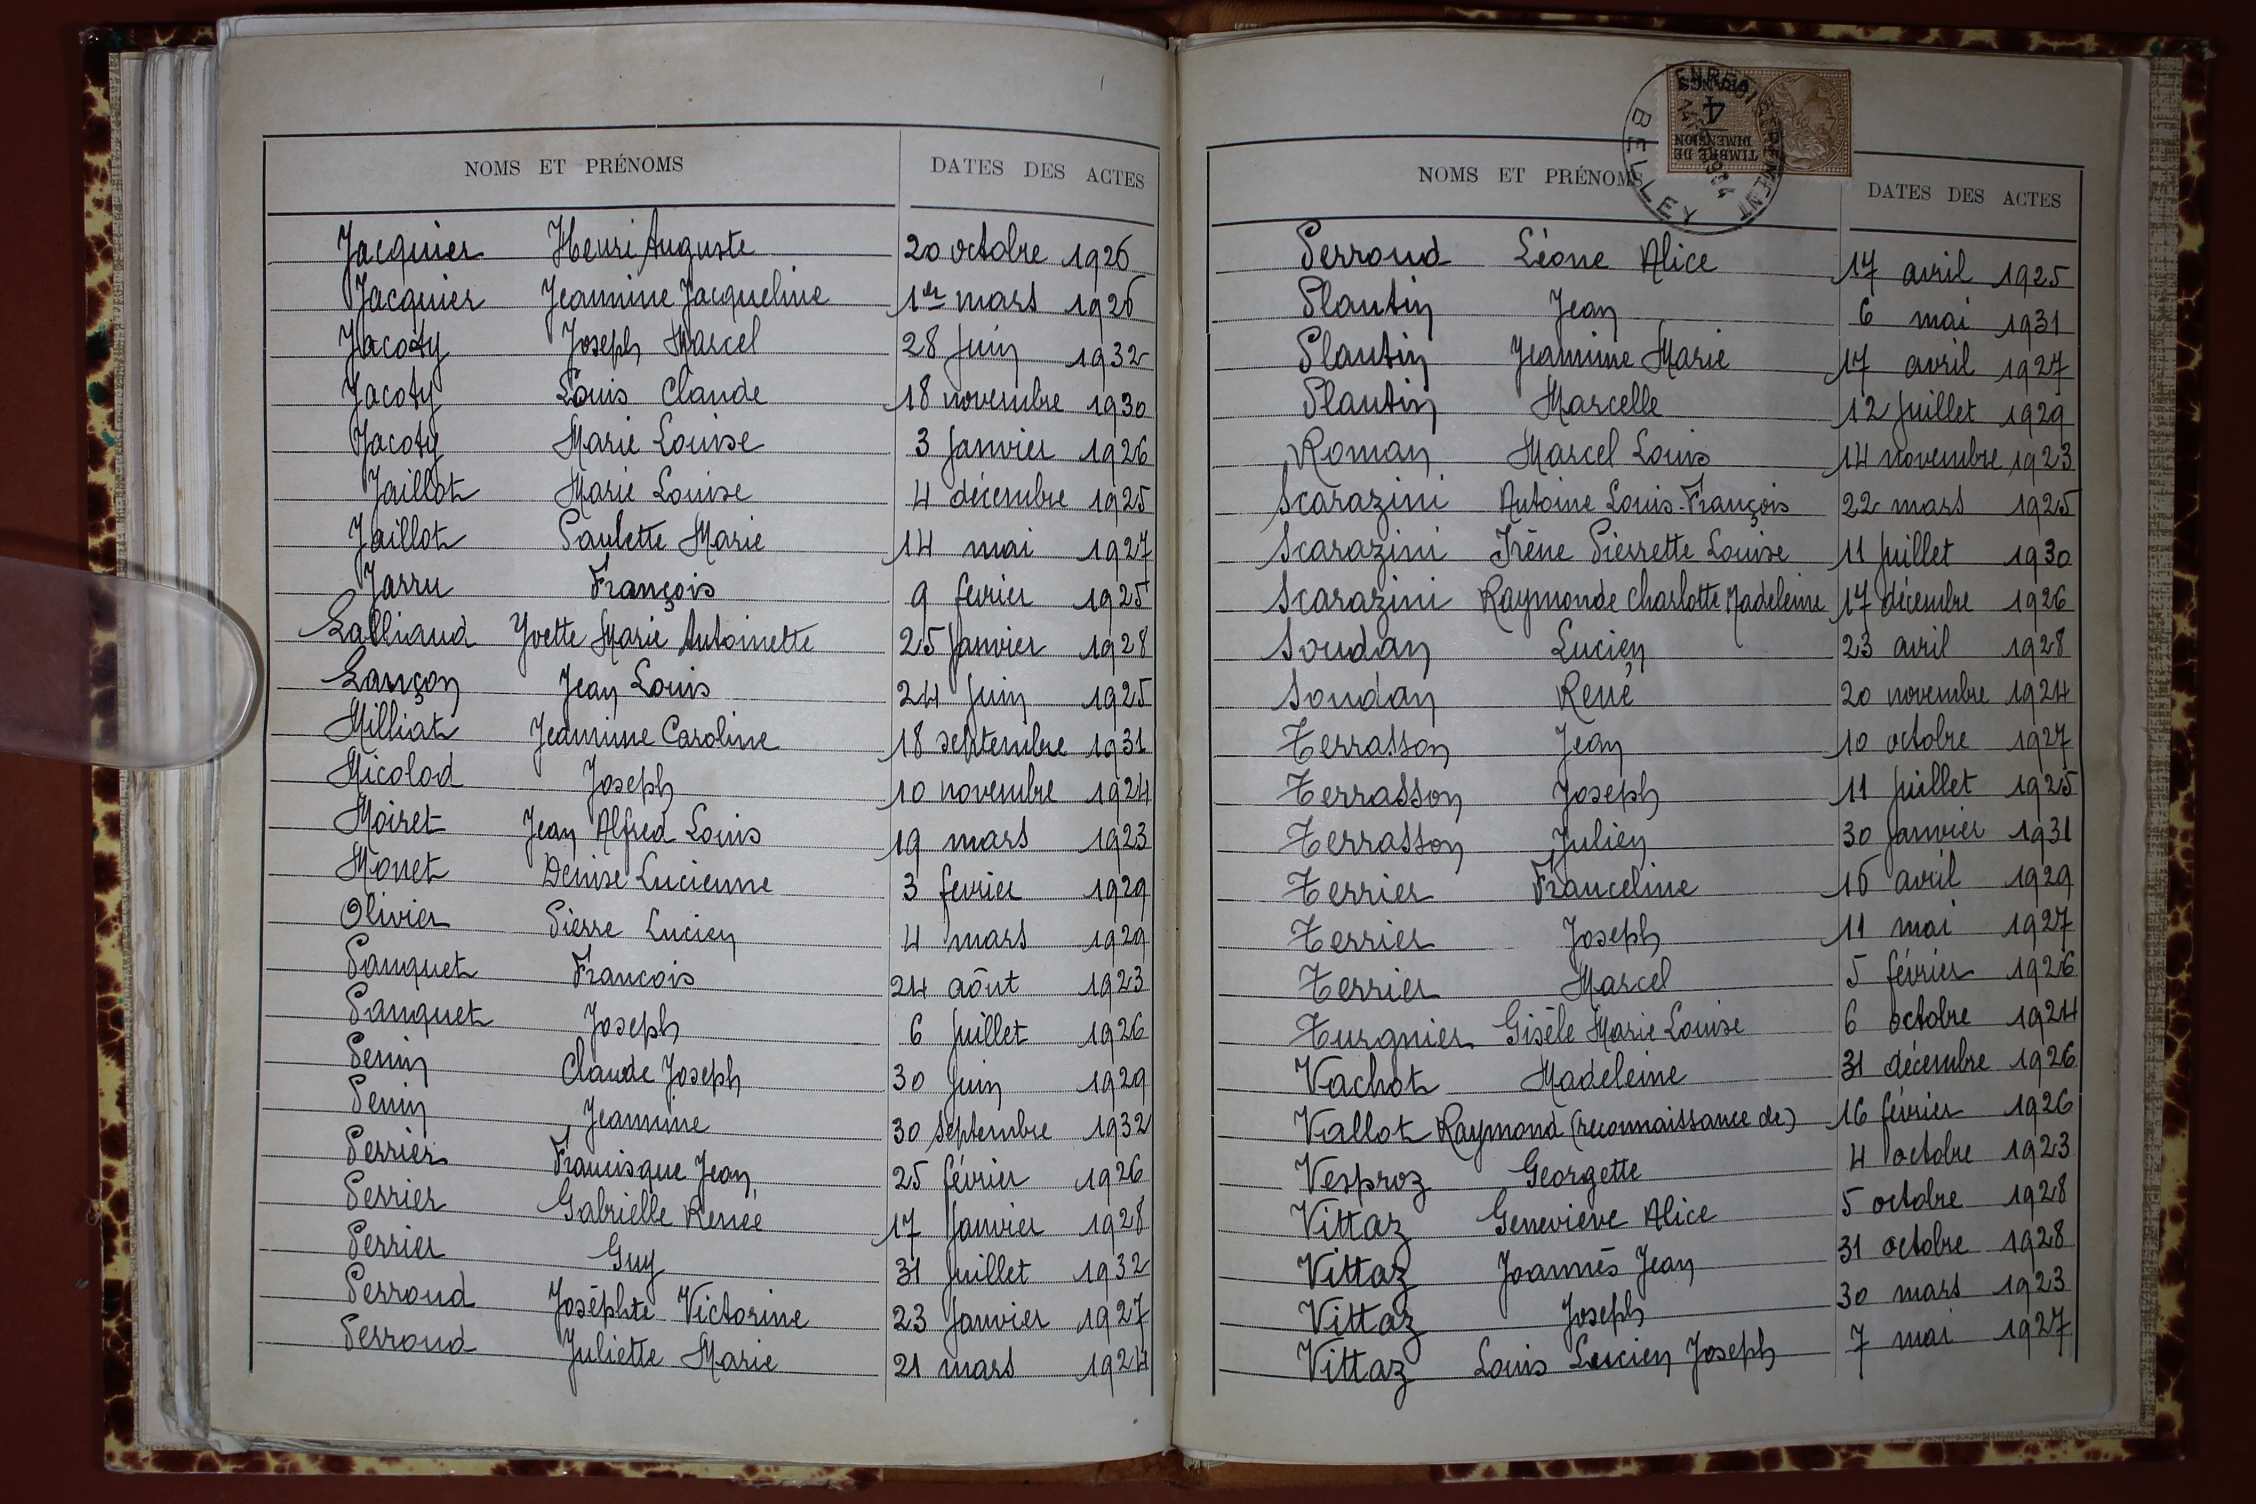 NOMS ET PRÉNOMS DATES DES ACTES
Jacquier Henri Auguste 20 octobre 1926
Jacquier Jeannine Jacqueline 1er mars 1926
Jacoty Joseph Marcel 28 juin 1932
Jacoty Louis Claude 18 novembre 1930
Jacoty Marie Louise 3 janvier 1926
Jaillot Marie Louise 4 décembre 1925
Jaillot Paulette Marie 14 mai 1927
Jarru François 9 fevrier 1925
Lalliaud Yvette Marie Antoinette 25 janvier 1928
Lançon Jean Louis 24 juin 1925
Milliat Jeannine Caroline 18 septembre 1931
Micolod Joseph 10 novembre 1924
Moiret Jean Alfred Louis 19 mars 1923
Monet Denise Lucienne 3 fevrier 1929
Olivier Pierre Lucien 4 mars 1929
Panquet Francois 24 aôut 1923
Panquet Joseph 6 juillet 1926
Penin Claude Joseph 30 juin 1929
Penin Jeannine 30 septembre 1932
Perrier Francisque Jean 25 février 1926
Perrier Gabrielle Renée 17 janvier 1928
Perrier Guy 31 juillet 1932
Perroud Joséphte Victorine 23 janvier 1927
Perroud Juliette Marie 21 mars 1924
ENREGISTREMENT BELLEY
TIMBRE DE DIMENSION
4 FRANCS
NOMS ET PRÉNOMS DATES DES ACTES
Perroud Léone Alice 17 avril 1925
Plantin Jean 6 mai 1931
Plantin Jeannine Marie 17 avril 1927
Plantin Marcelle 12 juillet 1929
Roman Marcel Louis 14 novembre 1923
Scarazini Antoine Louis-François 22 mars 1925
Scarazini Irène Pierrette Louise 11 juillet 1930
Scarazini Raymonde Charlotte Madeleine 17 décembre 1926
Soudan Lucien 23 avril 1928
Soudan René 20 novembre 1924
Terrasson Jean 10 octobre 1927
Terrasson Joseph 11 juillet 1925
Terrasson Julien 30 janvier 1931
Terrier Franceline 16 avril 1929
Terrier Joseph 11 mai 1927
Terrier Marcel 5 février 1926
Turgnier Gisèle Marie Louise 6 octobre 1924
Vachot Madeleine 31 décembre 1926
Vallot Raymond (reconnaissance de) 16 février 1926
Vesproz Georgette 4 octobre 1923
Vittaz Geneviève Alice 5 octobre 1928
Vittaz Joannès Jean 31 octobre 1928
Vittaz Joseph 30 mars 1923
Vittaz Louis Lucien Joseph 7 mai 1927